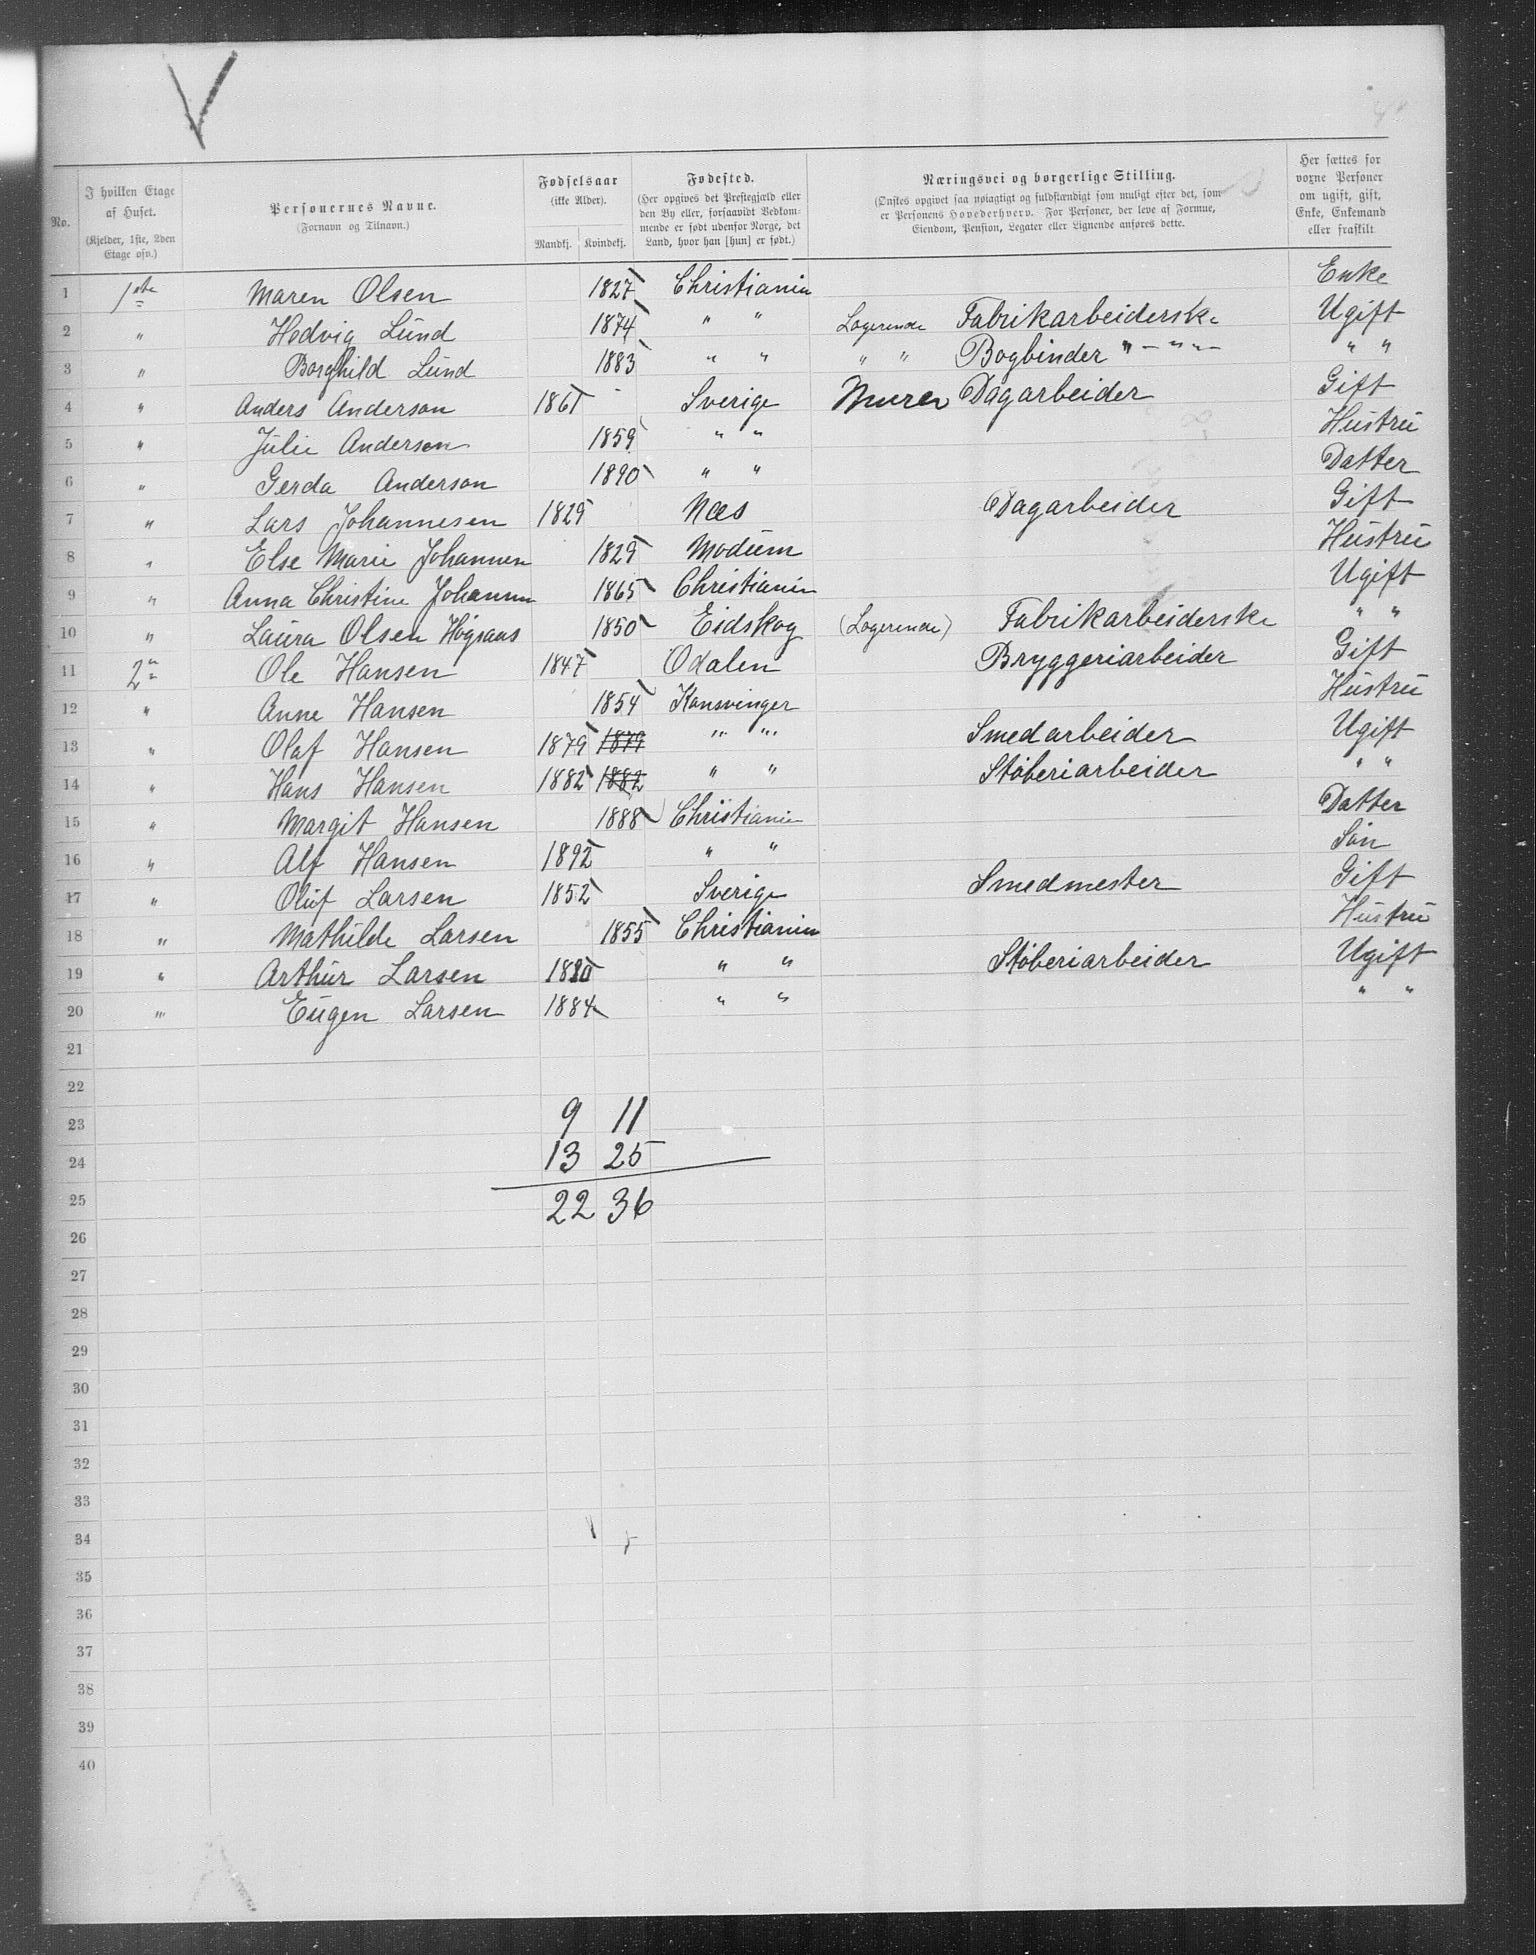 No. | I hvilken Etage af Huset. (Kjelder, 1ste, 2den Etage osv.) | Personernes Navne. (Fornavn og Tilnavn.) | Fødselsaar (ikke Alder). Mandkj. Kvindekj. | Fødested. (Her opgives det Præstegjæld eller den By eller, forsaavidt Vedkommende er født udenfor Norge, det Land, hvor han [hun] er født.) | Næringsvei og borgerlige Stilling. (Ønskes opgivet saa nøiagtigt og fuldstændigt som muligt efter det, som er Personens Hovederhverv. For Personer, der leve af Formue, Eiendom, Pension, Legater eller Lignende anføres dette. | Her sættes for voxne Personer om ugift, gift, Enke, Enkemand eller fraskilt
1 1ste Maren Olsen 1827 Christiania Enke
2 " Hedvig Lund 1874 " " Logerende Fabrikarbeiderske Ugift
3 " Borghild Lund 1883 " " " " Bogbinder " - " - " " "
4 " Anders Anderson 1861 Sverige Murer Dagarbeider Gift
5 " Julie Anderson 1859 " " Hustru
6 " Gerda Anderson 1890 " " Datter
7 " Lars Johannesen 1829 Næs Dagarbeider Gift
8 " Else Marie Johannesen 1829 Modum Hustru
9 " Anna Christine Johannesen 1865 Christiania Ugift
10 " Laura Olsen Høgsaas 1850 Eidskog (Logerende) Fabrikarbeiderske " "
11 2" Ole Hansen 1847 Odalen Bryggeriarbeider Gift
12 " Anne Hansen 1854 Konsvinger Hustru
13 " Olaf Hansen 1879 1879 " " Smedarbeider Ugift
14 " Hans Hansen 1882 1882 " " Støberiarbeider " "
15 " Margit Hansen 1888 Christiania Datter
16 " Alf Hansen 1892 " " Søn
17 " Oluf Larsen 1852 Sverige Smedmester Gift
18 " Mathilde Larsen 1855 Christiania Hustru
19 " Arthur Larsen 1880 " " Støberiarbeider Ugift
20 " Eugen Larsen 1884 " " " "
21
22
23 9 11
24 13 25
25 22 36
26
27
28
29
30
31
32
33
34
35
36
37
38
39
40